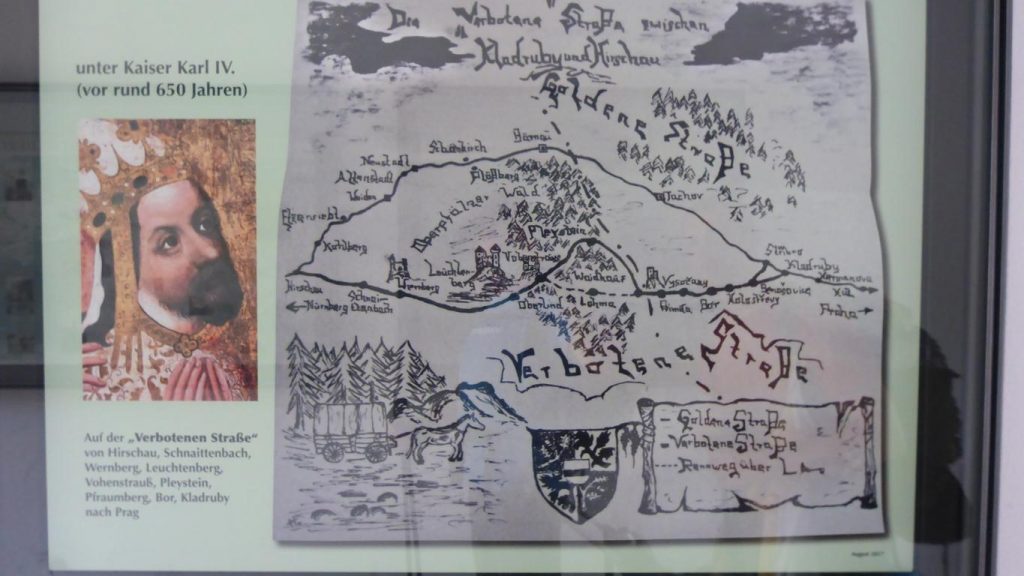 unter Kaiser Karl IV.
(vor rund 650 Jahren)
Auf der „Verbotenen Straße“
von Hirschau, Schnaittenbach,
Wernberg, Leuchtenberg,
Vohenstrauß, Pleystein,
Pfraumberg, Bor, Kladruby
nach Prag
Die "Verbotene" Straße zwischen
Kladruby und Hirschau
Goldene Straße
Bärnau
Neustadt
Altenstadt
Weiden
Plößberg
Wald
Oberpfälzer
Tachov
Kohlberg
Pleystein
Leuchten-
berg
Waidhaus
Vysočany
Stříbro
Kladruby
Hirschau
Wernberg
Lohma
Přimda
Bor
Nürnberg
Praha
Verbotene Straße
Goldene Straße
Verbotene Straße
Rennweg über
August 2017